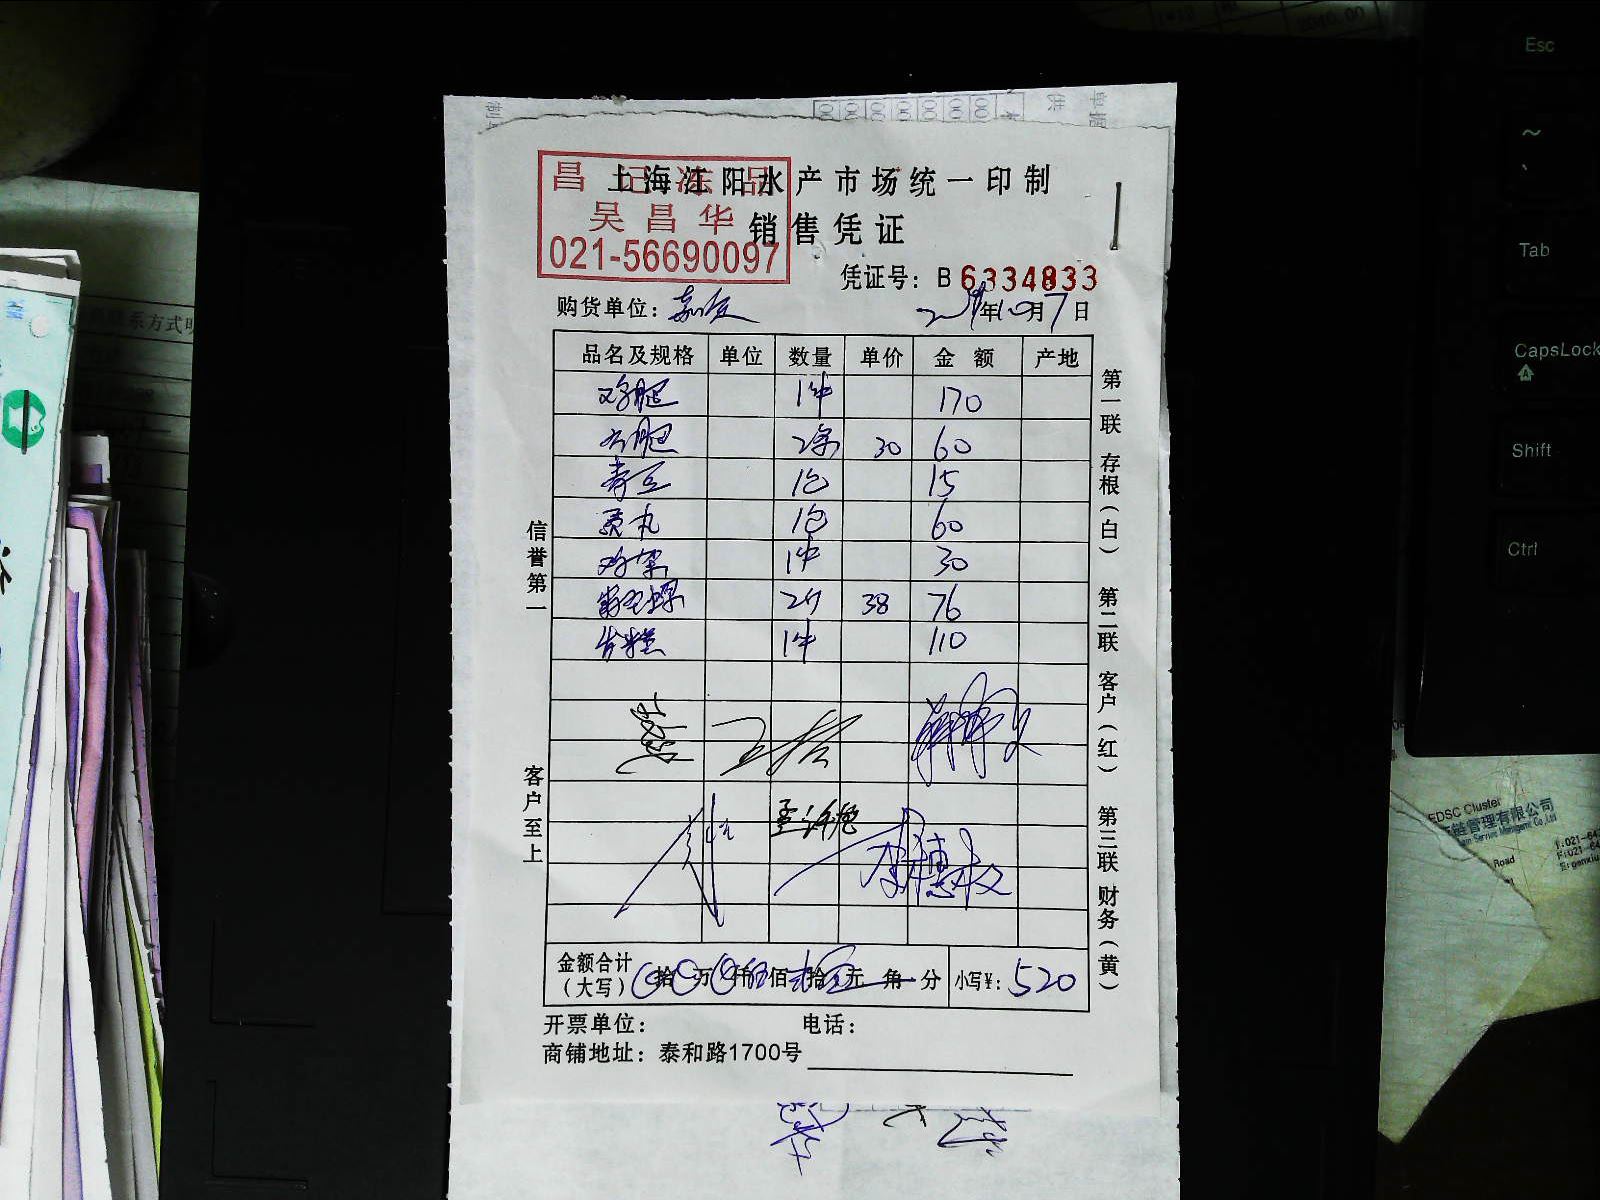 昌记冻品
吴昌华
021-56690097
上海江阳水产市场统一印制
销售凭证
凭证号: B 6334833
购货单位:
年10月7日
品名及规格 单位 数量 单价 金额 产地
鸡腿 1件 170
火腿 2条 30 60
青豆 1包 15
贡丸 1包 60
鸡架 1件 30
2斤 38 76
年糕 1件 110
金额合计(大写) 拾 万 仟伍佰贰拾元 角 分 小写¥: 520
开票单位: 电话:
商铺地址: 泰和路1700号
信誉第一
客户至上
第一联 存根(白) 第二联 客户(红) 第三联 财务(黄)
Esc
~
Tab
CapsLock
Shift
Ctrl
EDSC Cluster
链管理有限公司
Road